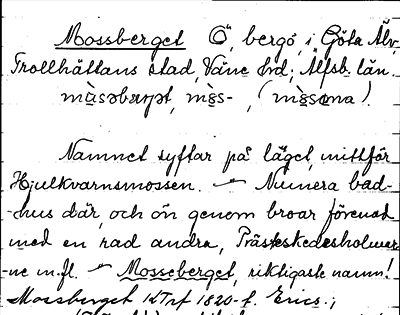 Mossberget Ö, bergö, i Göta Älv,
Trollhättans stad, Väne hd; Älfsb. län.
Namnet syftar på läget mittför
Hjulkvarnsmossen. — Numera bad-
-hus där, och ön genom broar förenad
med en rad andra, Prästeskedesholmar-
-ne m.fl. — Mosseberget, riktigaste namn!
Mossberget KTrf 1820-t. Erics.;